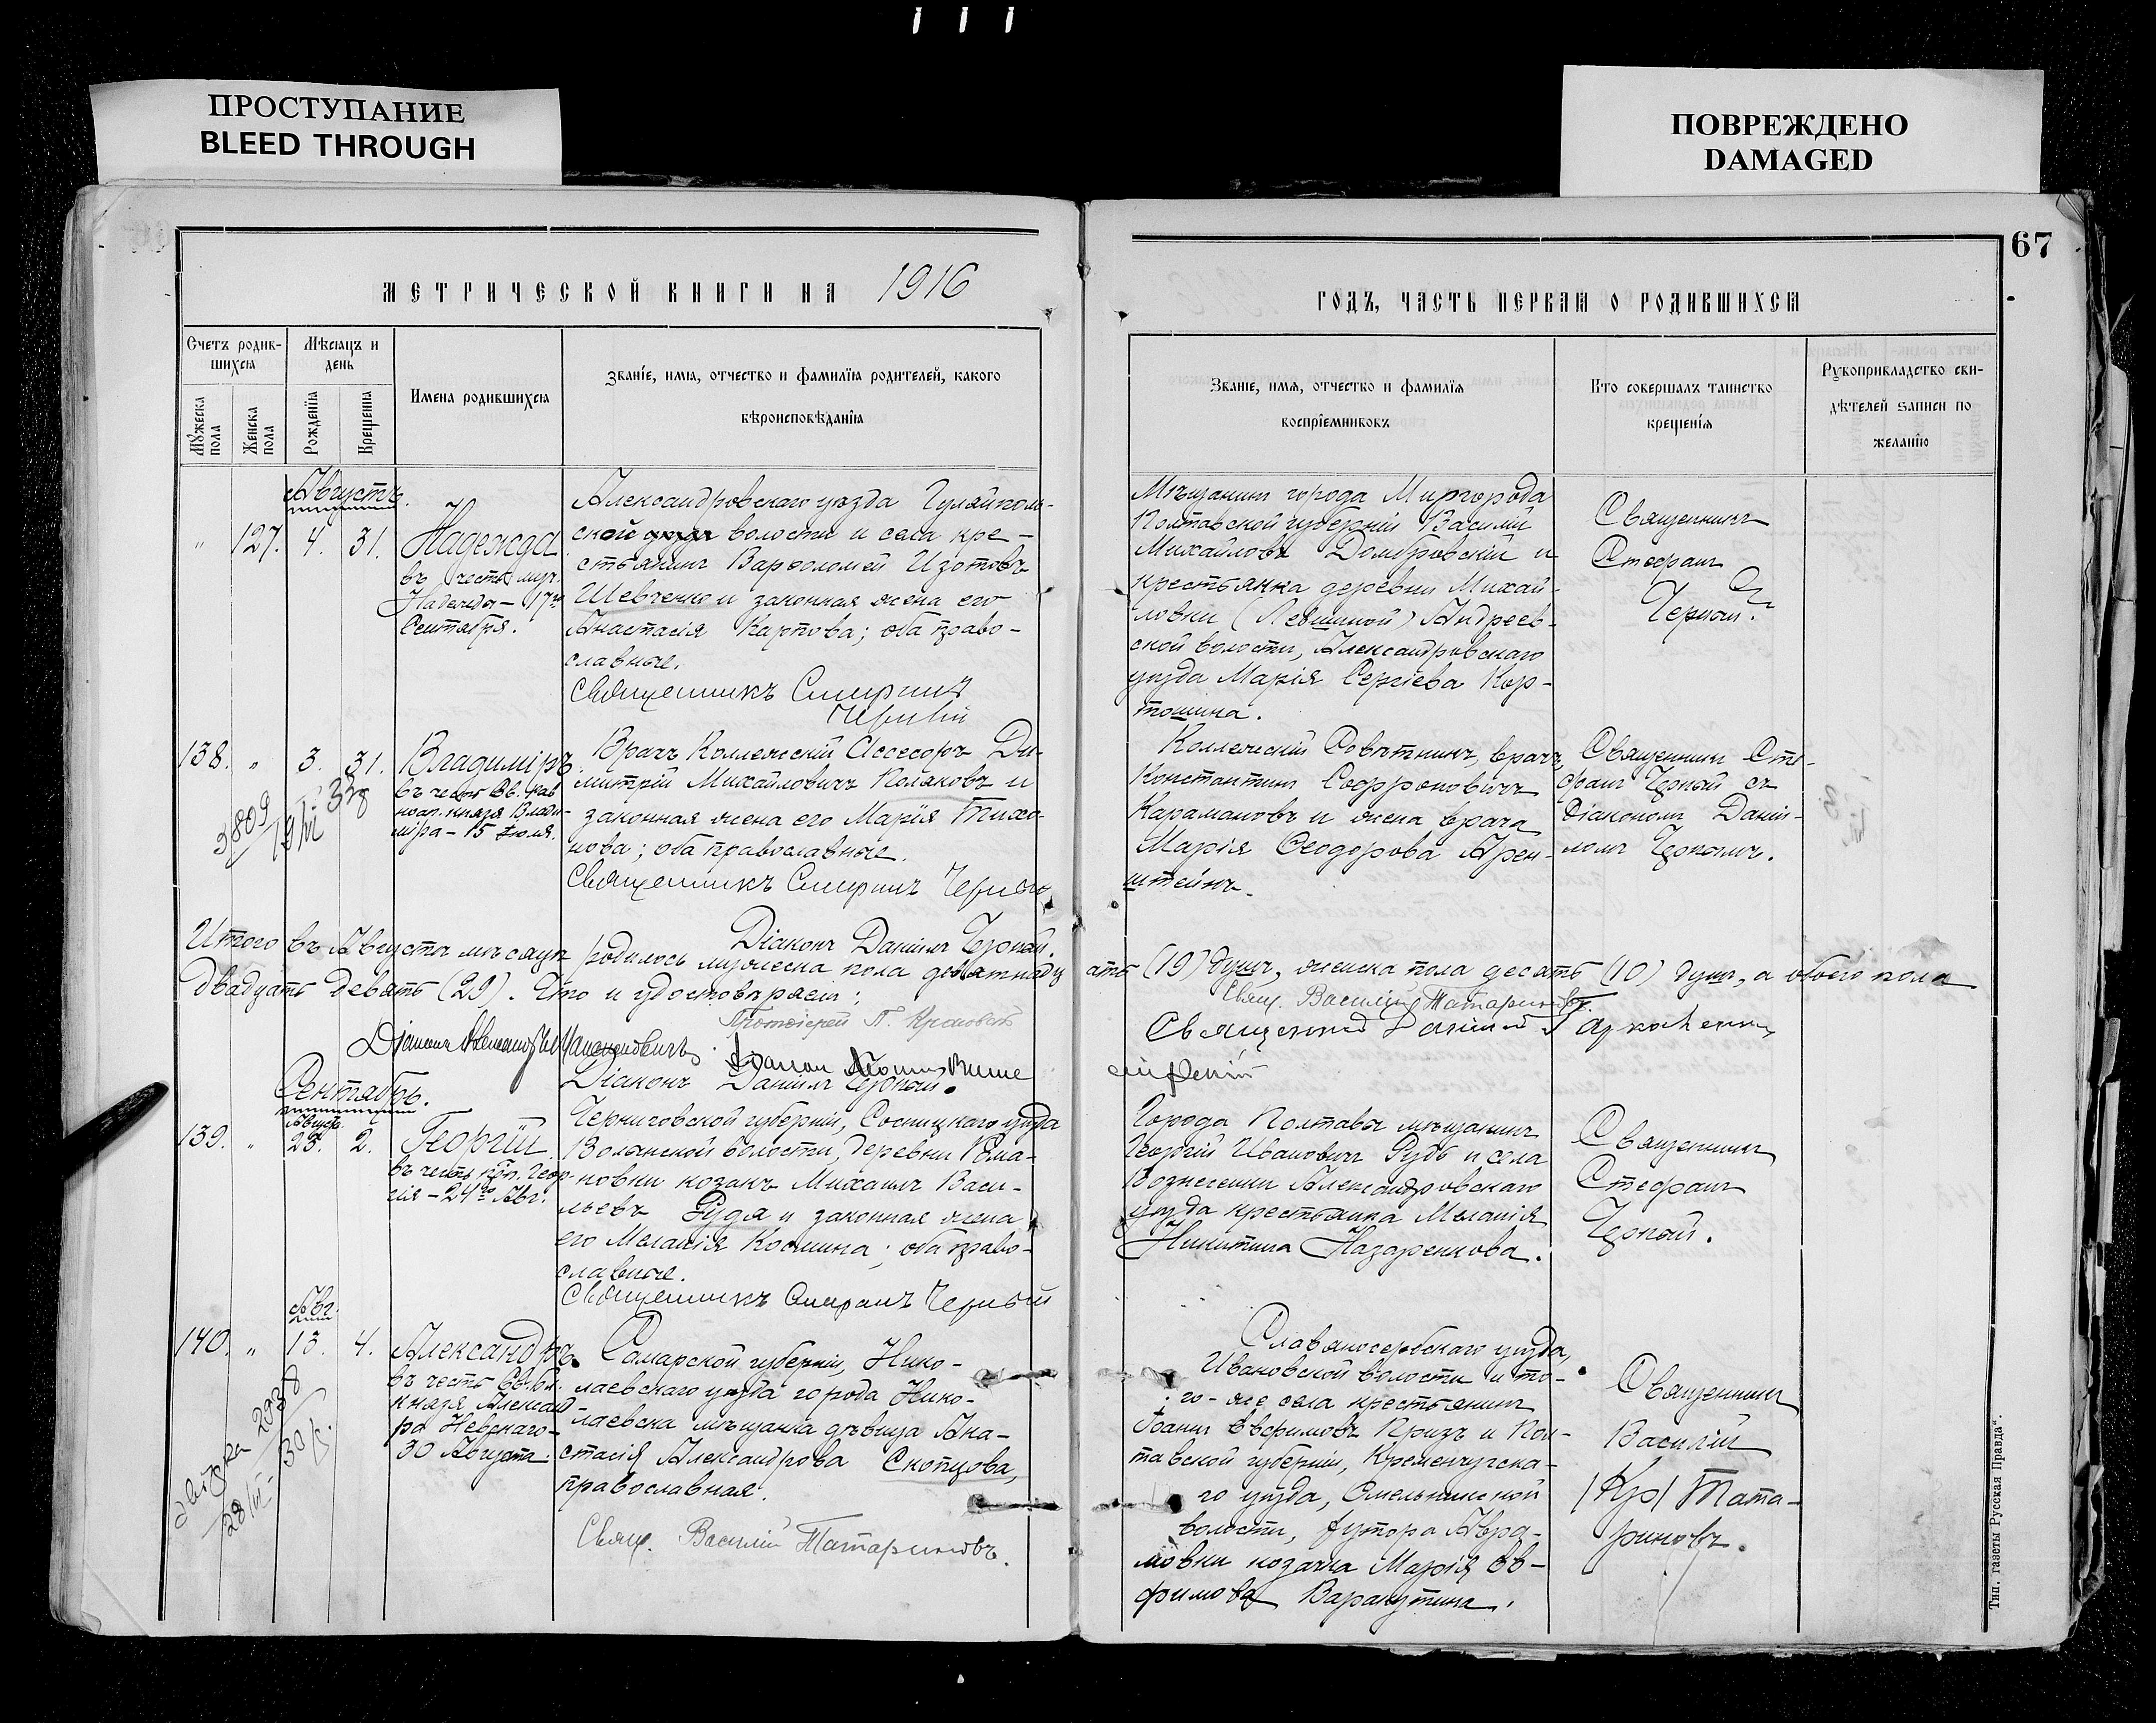 ПРОСТУПАНИЕ
BLEED THROUGH
ПОВРЕЖДЕНО
DAMAGED
67
МЕТРИЧЕСКОЙ КНИГИ НА 1916
ГОДЪ, ЧАСТЬ ПЕРВАЯ О РОДИВШИХСЯ
Счетъ родив-
шихся
Мѣсяцъ и
день
Мужеска
пола
Женска
пола
Рожденія
Крещенія
Имена родившихся
Званіе, имя, отчество и фамилія родителей, какого
вѣроисповѣданія
Званіе, имя, отчество и фамилія
воспріемниковъ
Кто совершалъ таинство
крещенія
Рукоприкладство сви-
дѣтелей записи по
желанію
Августъ.
" 127. 4. 31.
Надежда
въ честь муч.
Надежды - 17го
Сентября.
Александровскаго уѣзда Гуляйполь-
ской волости и села кре-
стьянинъ Варѳоломей Изотовъ
Шевченко и законная жена его
Анастасія Карпова; оба право-
славные.
Священникъ Стефанъ
Черный
Мѣщанинъ города Миргорода
Полтавской губерніи Василій
Михайловъ Домбровскій и
крестьянка деревни Михай-
ловки (Левшиной) Андреев-
ской волости, Александровскаго
уѣзда Марія Сергіева Кор-
тошина.
Священникъ
Стефанъ
Черный.
138. " 3. 31.
Владиміръ
въ честь Св. рав
ноап. князя Влади-
міра - 15 Іюля.
Врачъ Коллежскій Ассесоръ Ди-
митрій Михайловичъ Поляковъ и
законная жена его Марія Тихо-
нова; оба православные.
Священникъ Стефанъ Черный
Діаконъ Даніилъ Черный.
Коллежскій Совѣтникъ, врачъ
Константинъ Софроновичъ
Карамановъ и жена врача
Марія Ѳеодорова Арен-
штейнъ.
Священникъ Сте-
фанъ Черный съ
Діакономъ Даніи-
ломъ Чернымъ.
3809
19/VI
Итого въ Августѣ мѣсяцѣ родилось мужеска пола девятнадц ать (19) душъ, женска пола десять (10) душъ, а обоего пола
двадцать девять (29). Что и удостовѣряемъ:
Протоіерей П.
Свящ. Василій Татариновъ.
Священникъ Даніилъ
Діаконъ
Діаконъ Даніилъ Черный.
Сентябрь.
Август.
139. " 23. 2.
Георгій
въ честь Геор
гія - 24го Авг.
Черниговской губерніи, Сосницкаго уѣзда
Волынской волости, деревни Рома-
новки козакъ Михаилъ Васи-
льевъ Руда и законная жена
его Меланія Космина; оба право-
славные.
Священникъ Стефанъ Черный
Города Полтавы мѣщанинъ
Георгій Ивановичъ Рудь и села
Вознесенки Александровскаго
уѣзда крестьянка Меланія
Никитина Назаренкова.
Священникъ
Стефанъ
Черный.
Авг.
140. " 13. 4.
Александръ
въ честь Св. бл.
князя Александ-
ра Невскаго -
30 Августа.
Самарской губерніи, Нико-
лаевскаго уѣзда города Нико-
лаевска мѣщанка дѣвица Ана-
стасія Александрова Скопцова,
православная.
Свящ. Василій Татариновъ.
Славяносербскаго уѣзда,
Ивановской волости и то-
го-же села крестьянинъ
Іоаннъ Евфимовъ Призъ и Пол-
тавской губерніи, Кременчугска-
го уѣзда, Омельникской
волости, хутора Авра-
мовки козачка Марія Ев-
фимова Варакутина.
Священникъ
Василій
Тата-
риновъ.
Тип. газеты „Русская Правда“.